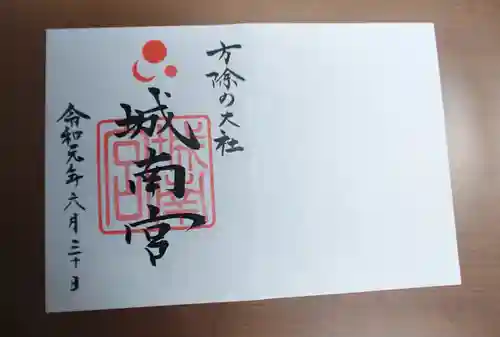 方除の大社
城南宮
令和元年六月三十日